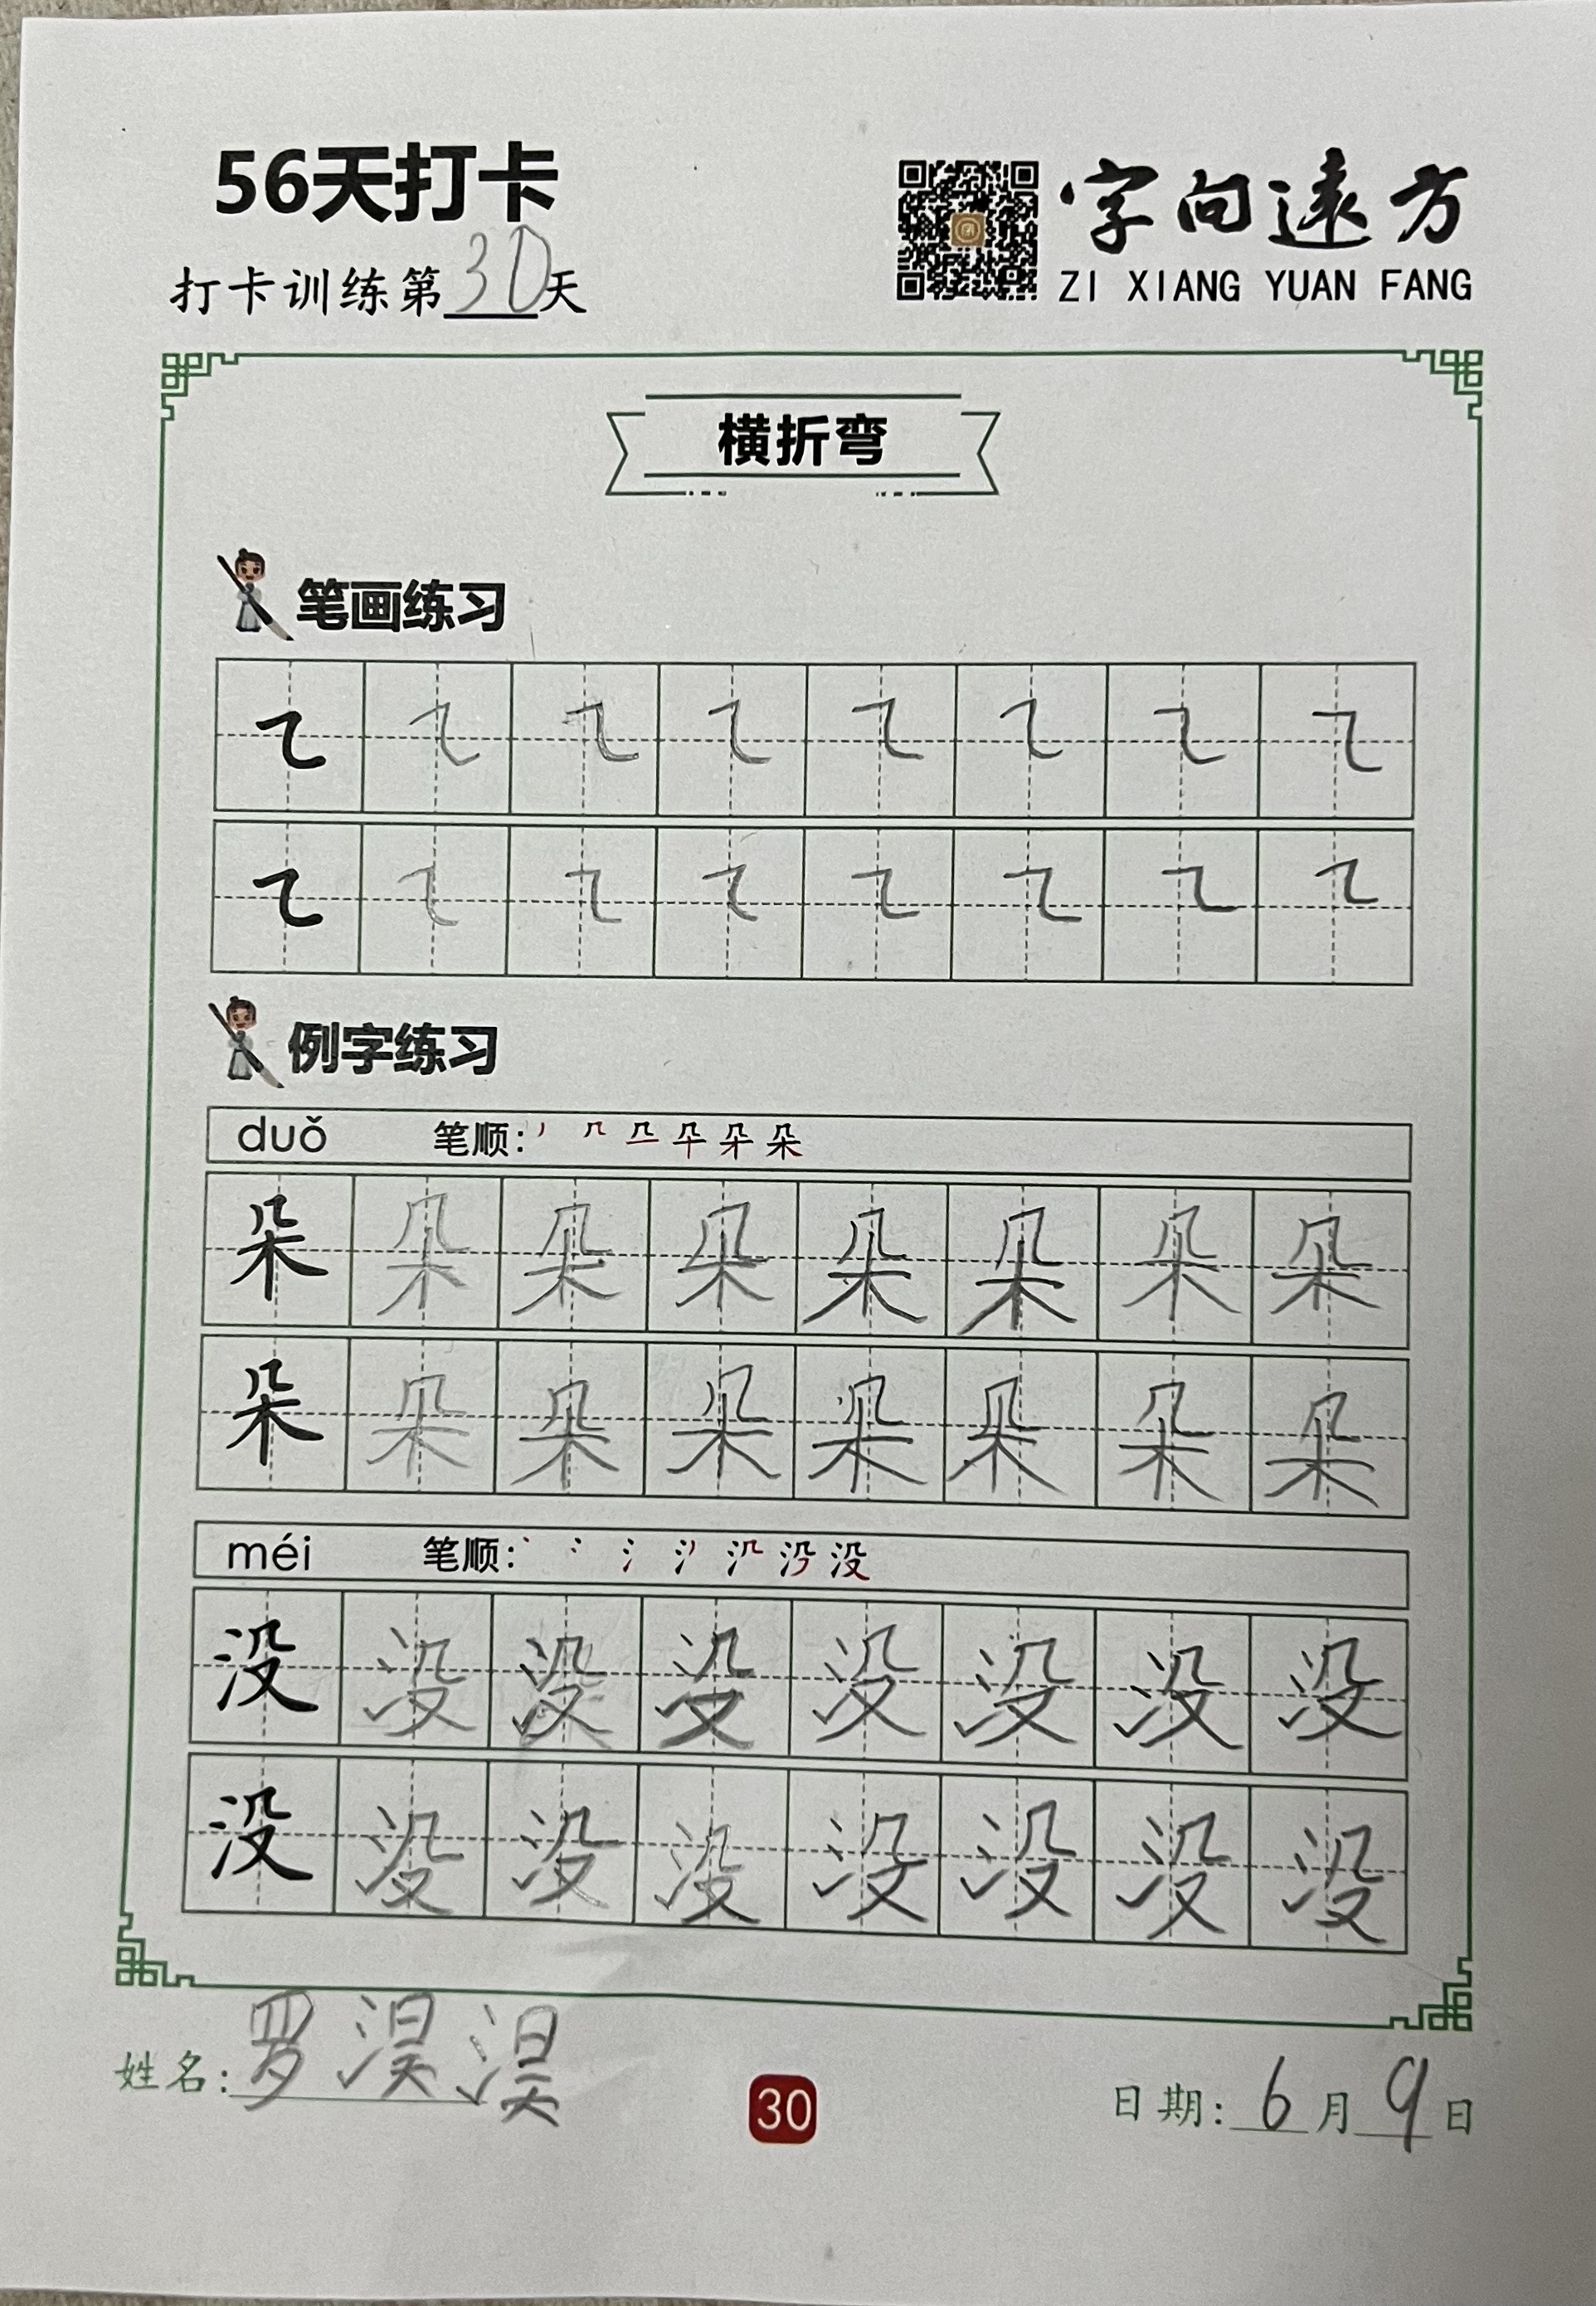 56天打卡
字向遠方
ZI XIANG YUAN FANG
打卡训练第30天
横折弯
笔画练习
㇍ ㇍ ㇍ ㇍ ㇍ ㇍ ㇍ ㇍
㇍ ㇍ ㇍ ㇍ ㇍ ㇍ ㇍ ㇍
例字练习
duǒ 笔顺: 朵
朵 朵 朵 朵 朵 朵 朵 朵
朵 朵 朵 朵 朵 朵 朵 朵
méi 笔顺: 没
没 没 没 没 没 没 没 没
没 没 没 没 没 没 没 没
姓名: 罗淏淏
30
日期: 6月9日